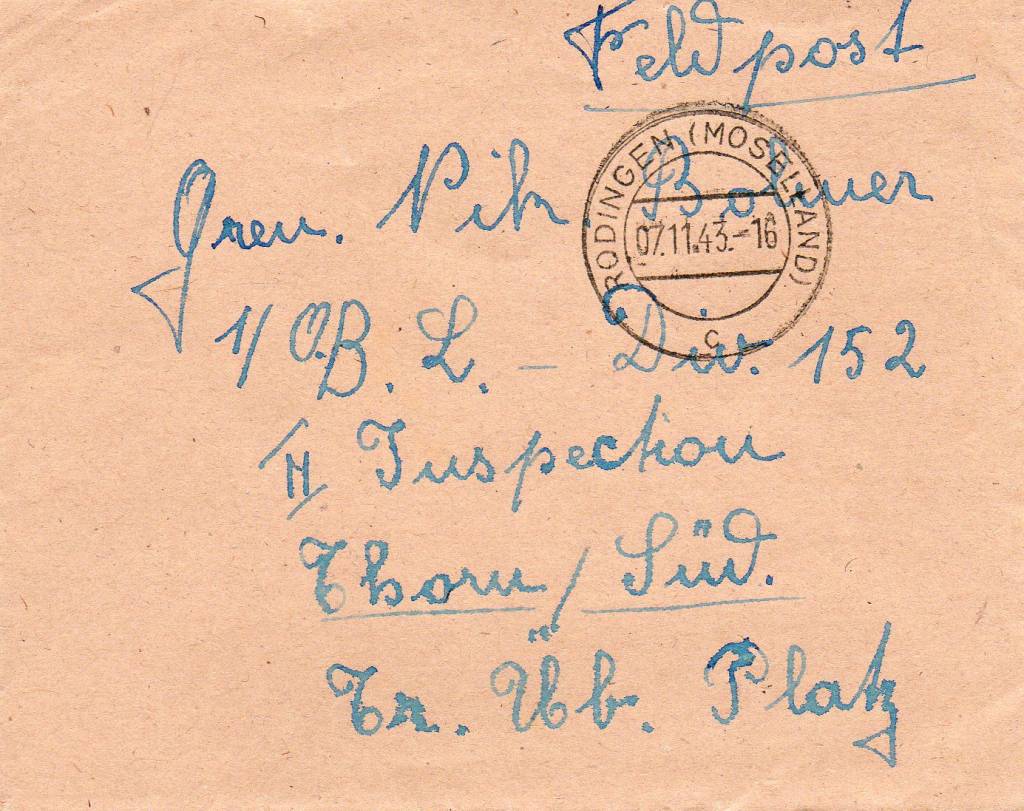 Feldpost
RODINGEN (MOSELLAND)
07.11.43.-16
c
Gren. Pik Bohner
1/ O.B. L. – Div. 152
II Inspection
Thorn / Süd.
Tr. Üb. Platz